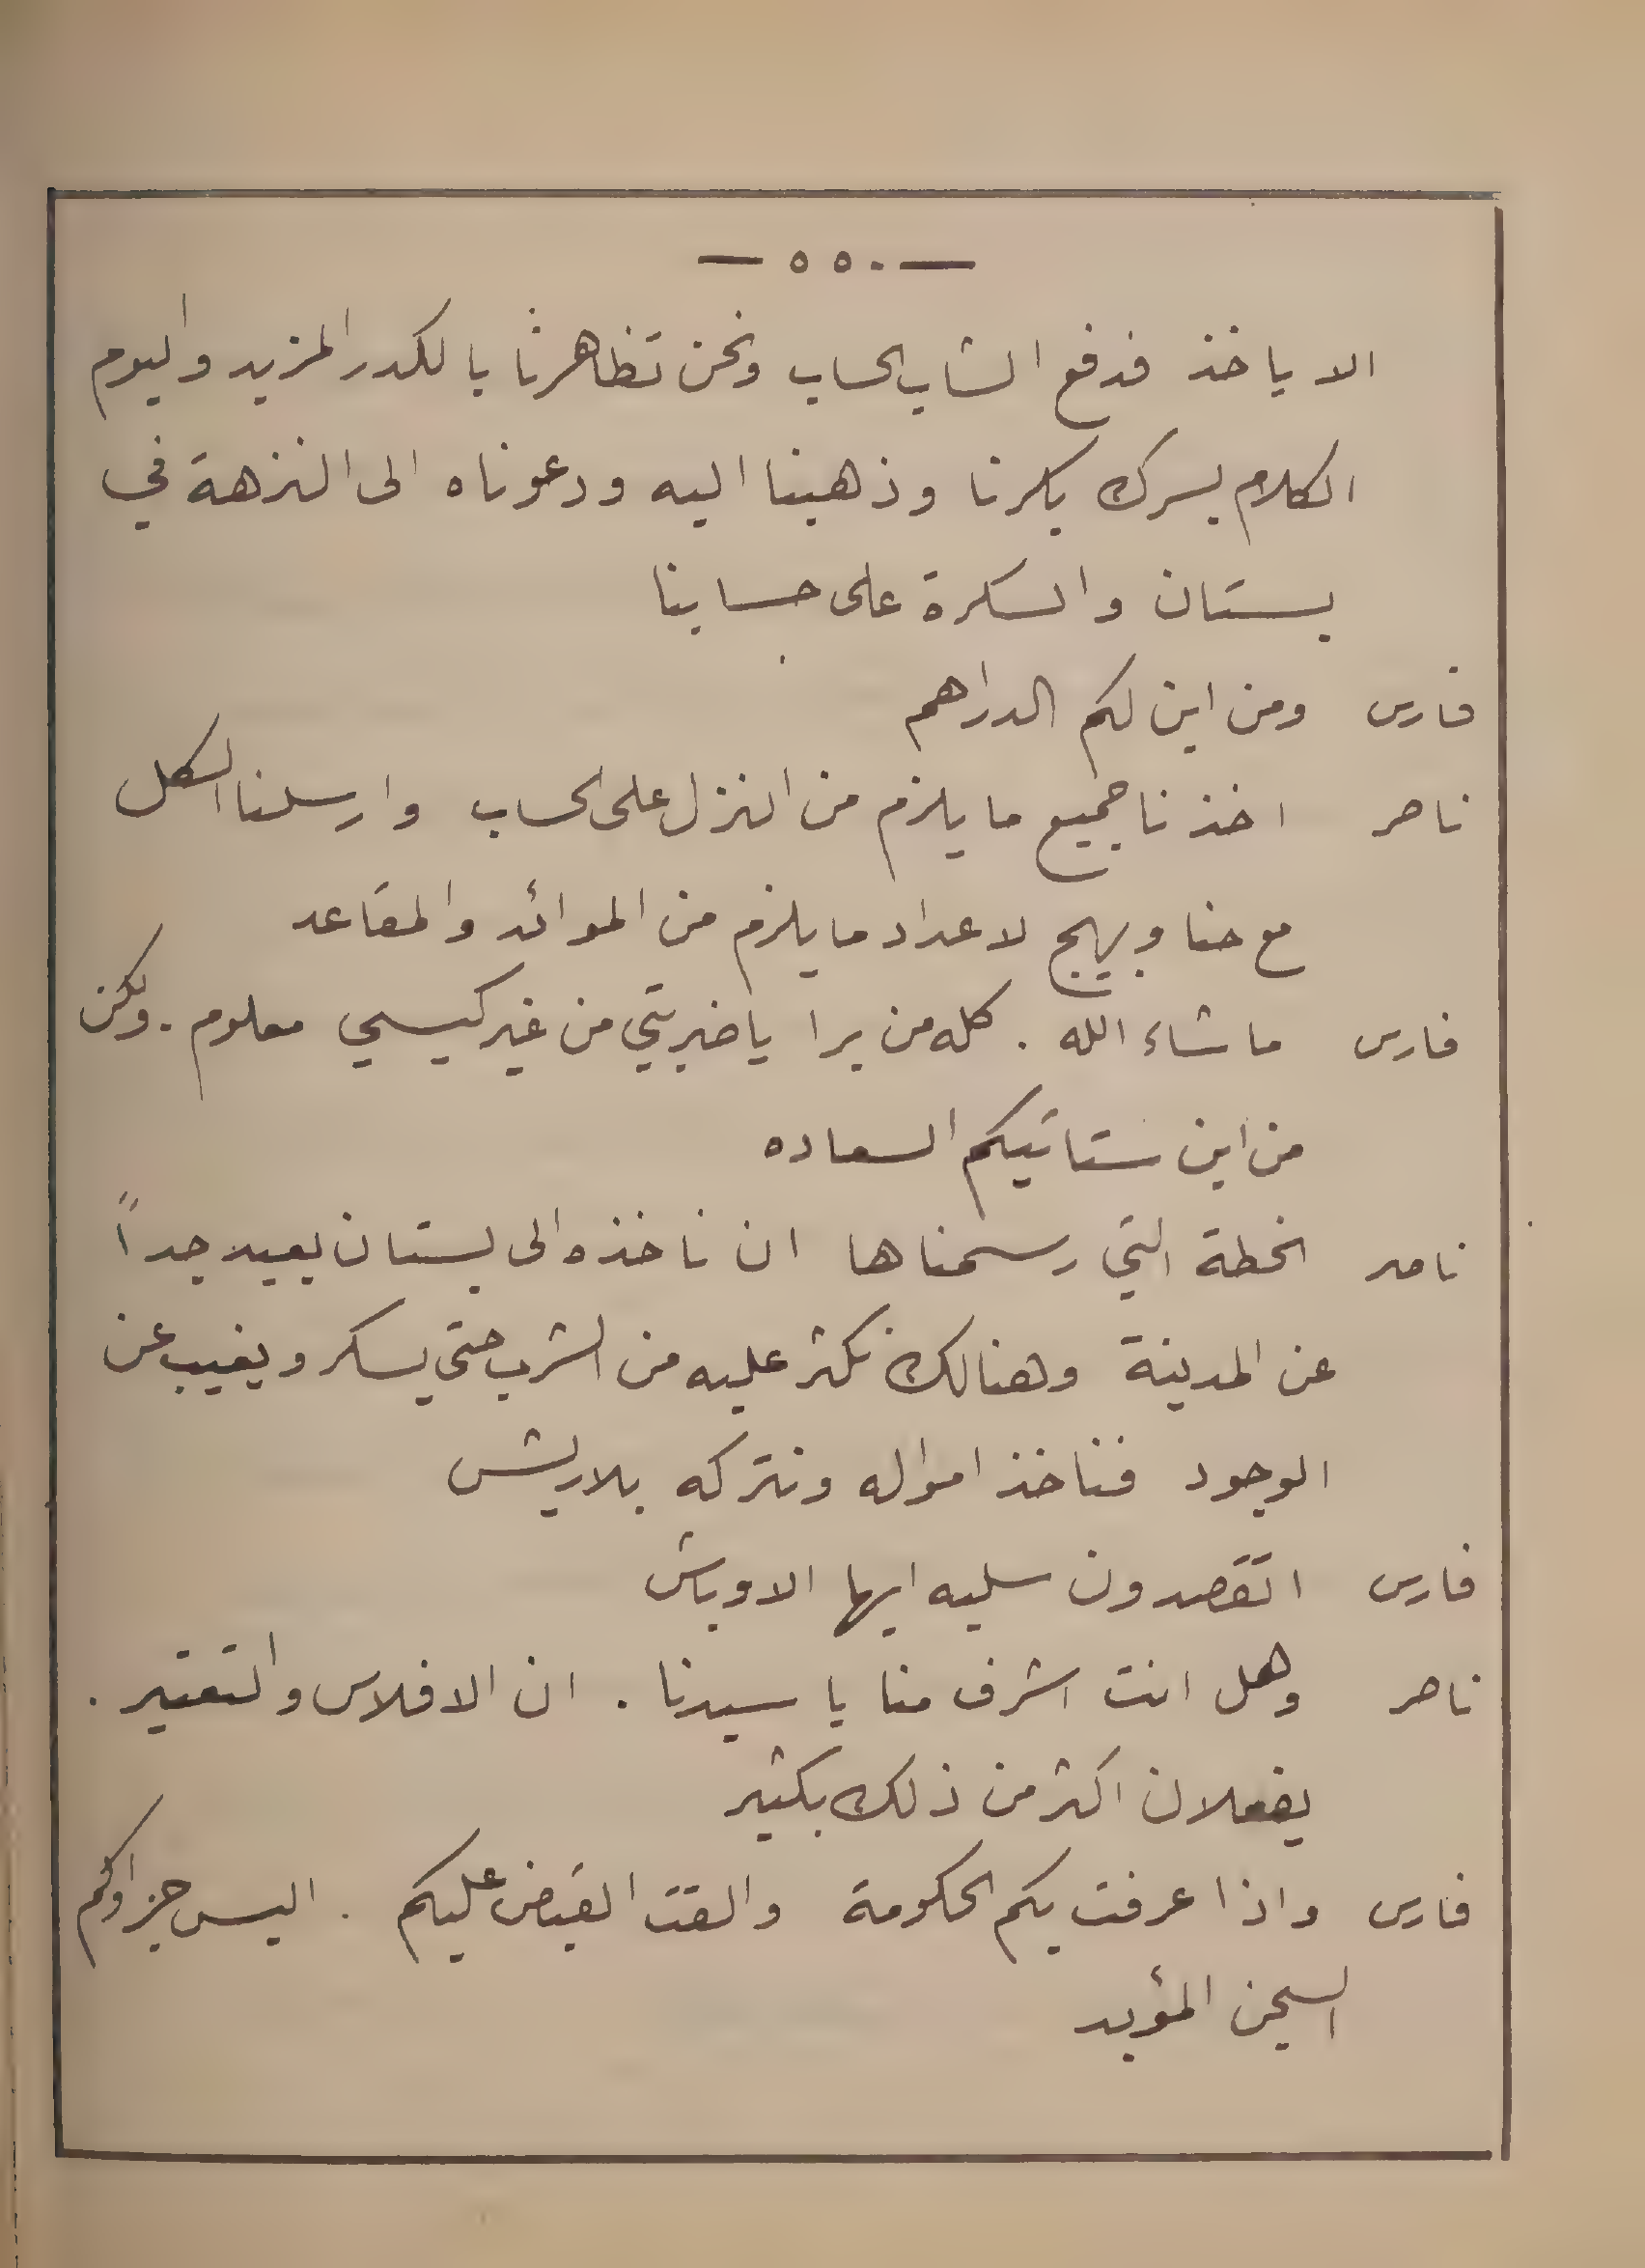 — ٥٥٠ —
الا ياخذ فدفع الشاب الحساب ونحن تظاهرنا بالكدر المزيد واليوم
الكلام بسرك بكرنا وذهبنا اليه ودعوناه الى النزهة في
بستان والسكرة على حسابنا
فارس ومن اين لكم الدراهم
ناصر اخذنا جميع ما يلزم من النزل على الحساب وارسلنا الكل
مع حنا وبهيج لاعداد ما يلزم من الموائد والمقاعد
فارس ما شاء الله . كله من برا يا ضربتي من غير كيسي معلوم . ولكن
من اين ستاتيكم السعاده
ناصر الخطة التي رسمناها ان ناخذه الى بستان بعيد جداً
عن المدينة وهنالك نكثر عليه من الشرب حتى يسكر ويغيب عن
الوجود فناخذ امواله ونتركه بلا ريش
فارس اتقصدون سلبه ايها الاوباش
ناصر وهل انت اشرف منا يا سيدنا . ان الافلاس والتعتير .
يفعلان اكثر من ذلك بكثير
فارس واذا عرفت بكم الحكومة والقت القبض عليكم . اليس جزاؤكم
السجن المؤبد